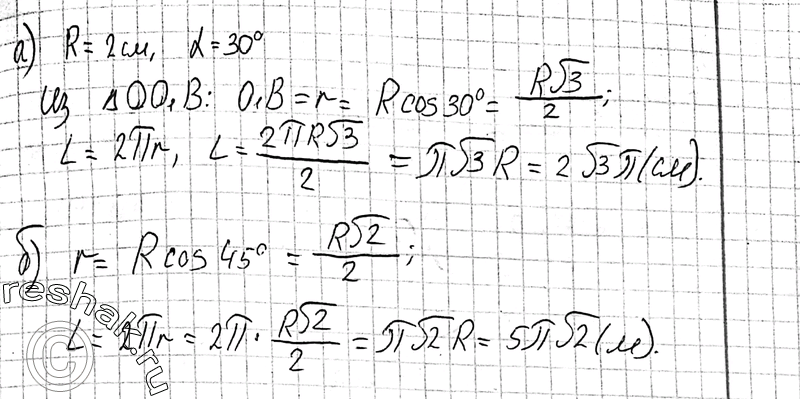 а) R = 2 см, α = 30°
Из △OO₁B: O₁B = r = R cos 30° = R√3/2;
L = 2πr, L = 2πR√3/2 = π√3 R = 2√3π (см).
б) r = R cos 45° = R√2/2;
L = 2πr = 2π · R√2/2 = π√2 R = 5π√2 (м).
reshak.ru
©